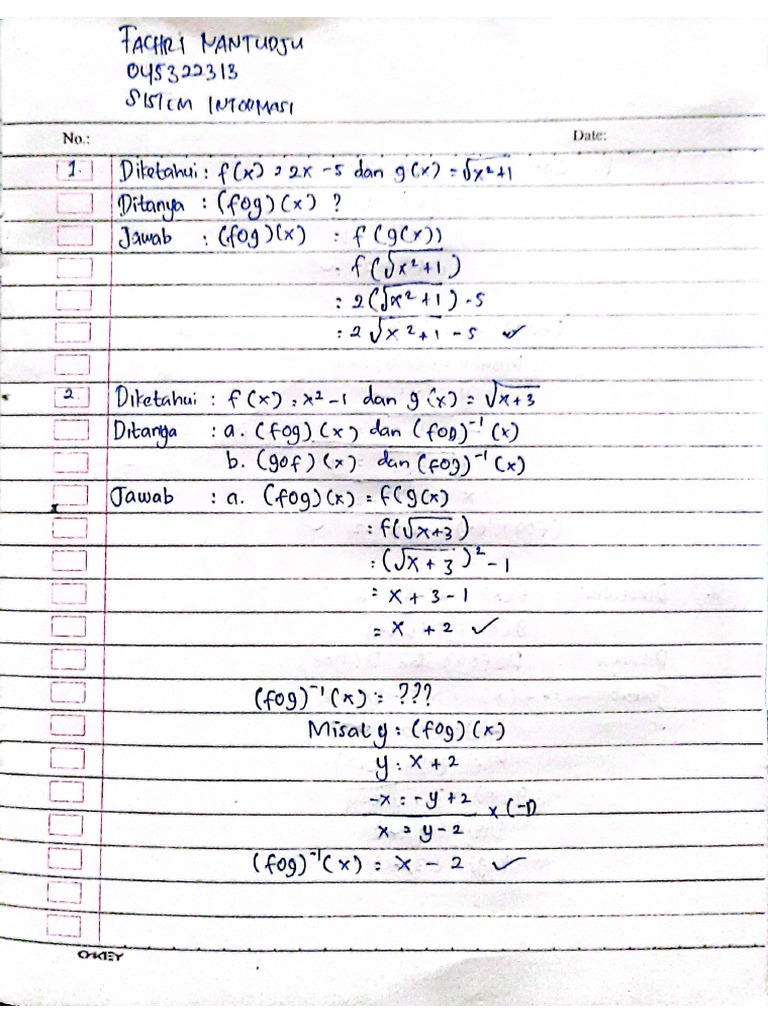 FACHRI MANTUDJU
045322313
SISTEM INFORMASI
No.: Date:
1. Diketahui : f(x) = 2x - 5 dan g(x) = √x²+1
Ditanya : (fog)(x) ?
Jawab : (fog)(x) = f(g(x))
= f(√x²+1)
= 2(√x²+1) - 5
= 2√x²+1 - 5 ✓
2. Diketahui : f(x) = x² - 1 dan g(x) = √x+3
Ditanya : a. (fog)(x) dan (fog)⁻¹(x)
b. (gof)(x) dan (fog)⁻¹(x)
Jawab : a. (fog)(x) = f(g(x)
= f(√x+3)
= (√x+3)² - 1
= x + 3 - 1
= x + 2 ✓
(fog)⁻¹(x) = ???
Misal y = (fog)(x)
y = x + 2
-x = -y + 2
x (-1)
x = y - 2
(fog)⁻¹(x) = x - 2 ✓
OKEY